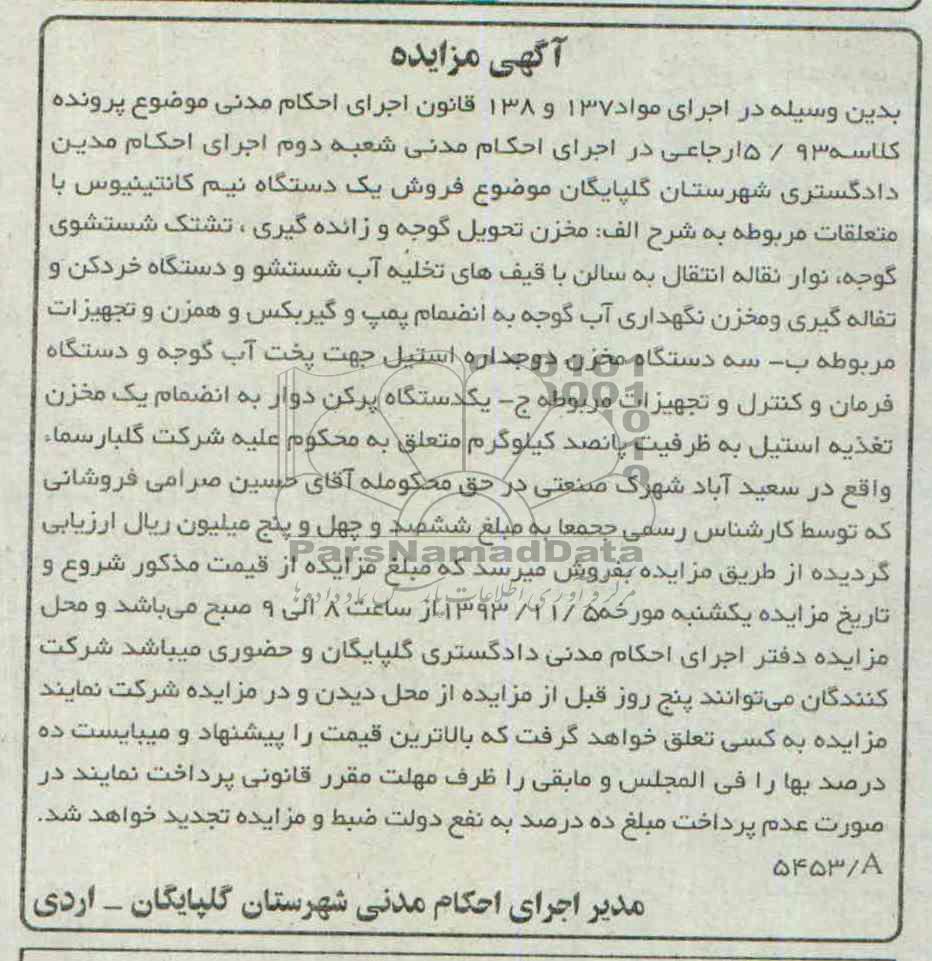 آگهی مزایده
بدین وسیله در اجرای مواد۱۳۷ و ۱۳۸ قانون اجرای احکام مدنی موضوع پرونده
کلاسه۹۳ / ۵ارجاعی در اجرای احکام مدنی شعبه دوم اجرای احکام مدین
دادگستری شهرستان گلپایگان موضوع فروش یک دستگاه نیم کانتینیوس با
متعلقات مربوطه به شرح الف: مخزن تحویل گوجه و زائده گیری ، تشتک شستشوی
گوجه، نوار نقاله انتقال به سالن با قیف های تخلیه آب شستشو و دستگاه خردکن و
تفاله گیری ومخزن نگهداری آب گوجه به انضمام پمپ و گیربکس و همزن و تجهیزات
مربوطه ب- سه دستگاه مخزن دوجداره استیل جهت پخت آب گوجه و دستگاه
فرمان و کنترل و تجهیزات مربوطه ج- یکدستگاه پرکن دوار به انضمام یک مخزن
تغذیه استیل به ظرفیت پانصد کیلوگرم متعلق به محکوم علیه شرکت گلبارسماء
واقع در سعید آباد شهرک صنعتی در حق محکومله آقای حسین صرامی فروشانی
که توسط کارشناس رسمی جحمعا به مبلغ ششصد و چهل و پنج میلیون ریال ارزیابی
گردیده از طریق مزایده بفروش میرسد که مبلغ مزایده از قیمت مذکور شروع و
تاریخ مزایده یکشنبه مورخه۵/ ۱۱/ ۱۳۹۳از ساعت ۸ الی ۹ صبح می‌باشد و محل
مزایده دفتر اجرای احکام مدنی دادگستری گلپایگان و حضوری میباشد شرکت
کنندگان می‌توانند پنج روز قبل از مزایده از محل دیدن و در مزایده شرکت نمایند
مزایده به کسی تعلق خواهد گرفت که بالاترین قیمت را پیشنهاد و میبایست ده
درصد بها را فی المجلس و مابقی را ظرف مهلت مقرر قانونی پرداخت نمایند در
صورت عدم پرداخت مبلغ ده درصد به نفع دولت ضبط و مزایده تجدید خواهد شد.
۵۴۵۳/A
مدیر اجرای احکام مدنی شهرستان گلپایگان _ اردی
ParsNamadData